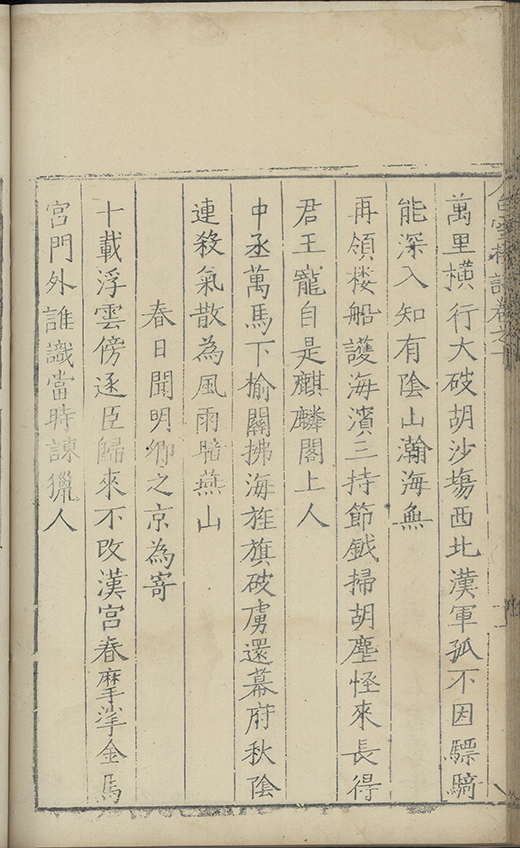 白雪樓詩卷之
萬里橫行大破胡沙塲西北漢軍孤不因驃騎
能深入知有陰山瀚海無
再領楼船護海濱三持節鉞掃胡塵怪來長得
君王寵自是麒麟閣上人
中丞萬馬下榆關拂海旌旗破虜還幕府秋陰
連殺氣散為風雨暗燕山
春日聞明卿之京為寄
十載浮雲傍逐臣歸來不改漢宮春摩挲金馬
宮門外誰識當時諫獵人